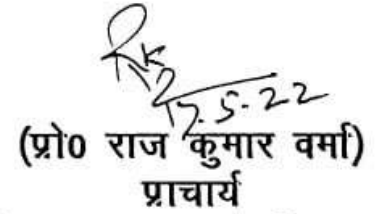 17.5.22
(प्रो0 राज कुमार वर्मा)
प्राचार्य